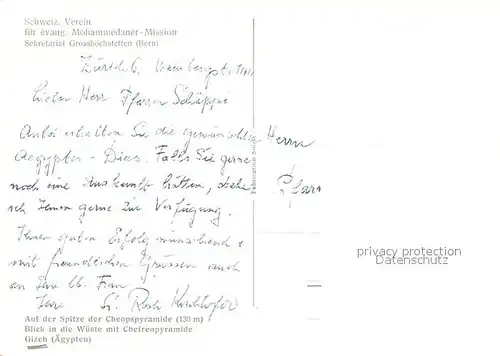 Schweiz. Verein
für evang. Mohammedaner-Mission
Sekretariat Grosshöchstetten (Bern)
Zürich 6,
Lieber Herr Pfarrer Schäppi
Anbei erhalten Sie die gewünschten
Aegypten-Dias. Falls Sie gerne
noch eine Auskunft hätten, stehe
ich Ihnen gerne zur Verfügung.
Ihnen guten Erfolg wünschend &
mit freundlichen Grüssen auch
an Ihre lb. Frau
Ihre
Herrn
Pfarr
privacy protection
Datenschutz
Auf der Spitze der Cheopspyramide (130 m)
Blick in die Wüste mit Chefrenpyramide
Gizeh (Ägypten)